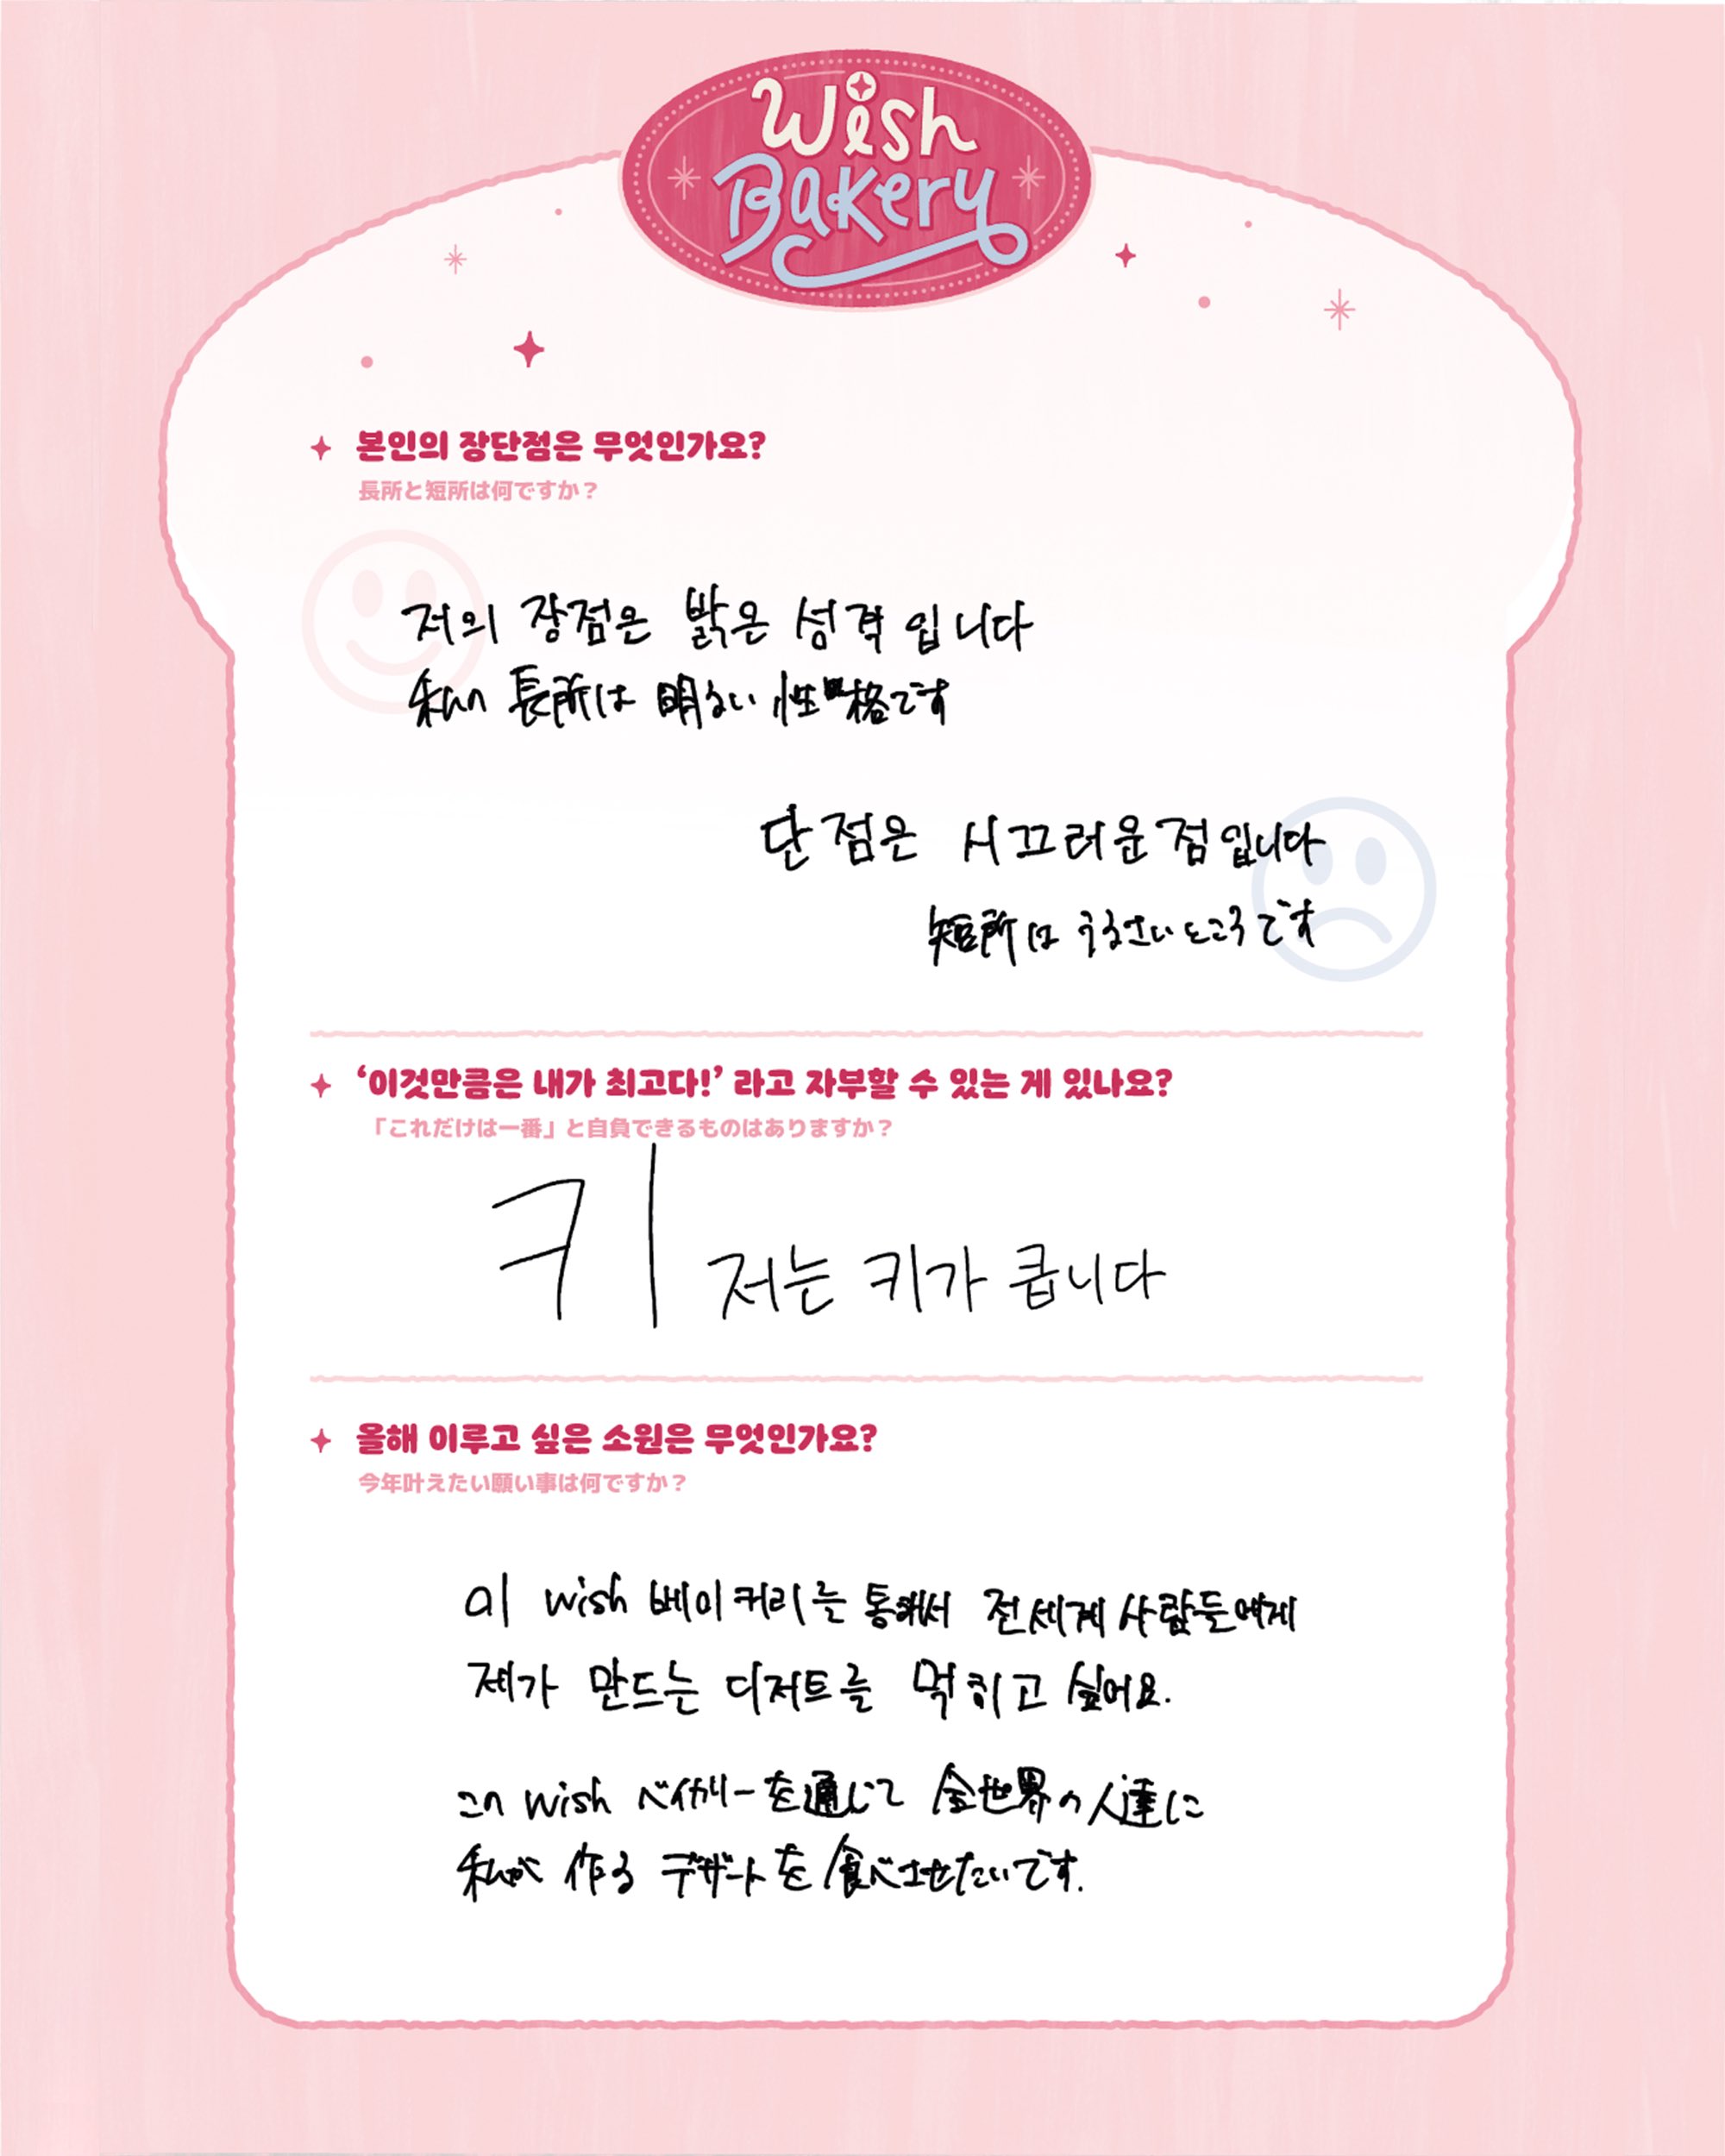 Wish
Bakery
본인의 장단점은 무엇인가요?
長所と短所は何ですか？
저의 장점은 밝은 성격 입니다
私の 長所は 明るい 性格です
단점은 시끄러운 점입니다
短所は うるさいところです
‘이것만큼은 내가 최고다!’ 라고 자부할 수 있는 게 있나요?
「これだけは一番」と自負できるものはありますか？
키 저는 키가 큽니다
올해 이루고 싶은 소원은 무엇인가요?
今年叶えたい願い事は何ですか？
이 wish 베이커리를 통해서 전세계 사람들에게
제가 만드는 디저트를 먹히고 싶어요.
この wish ベイカリーを通じて 全世界の人達に
私が 作る デザートを 食べさせたいです.